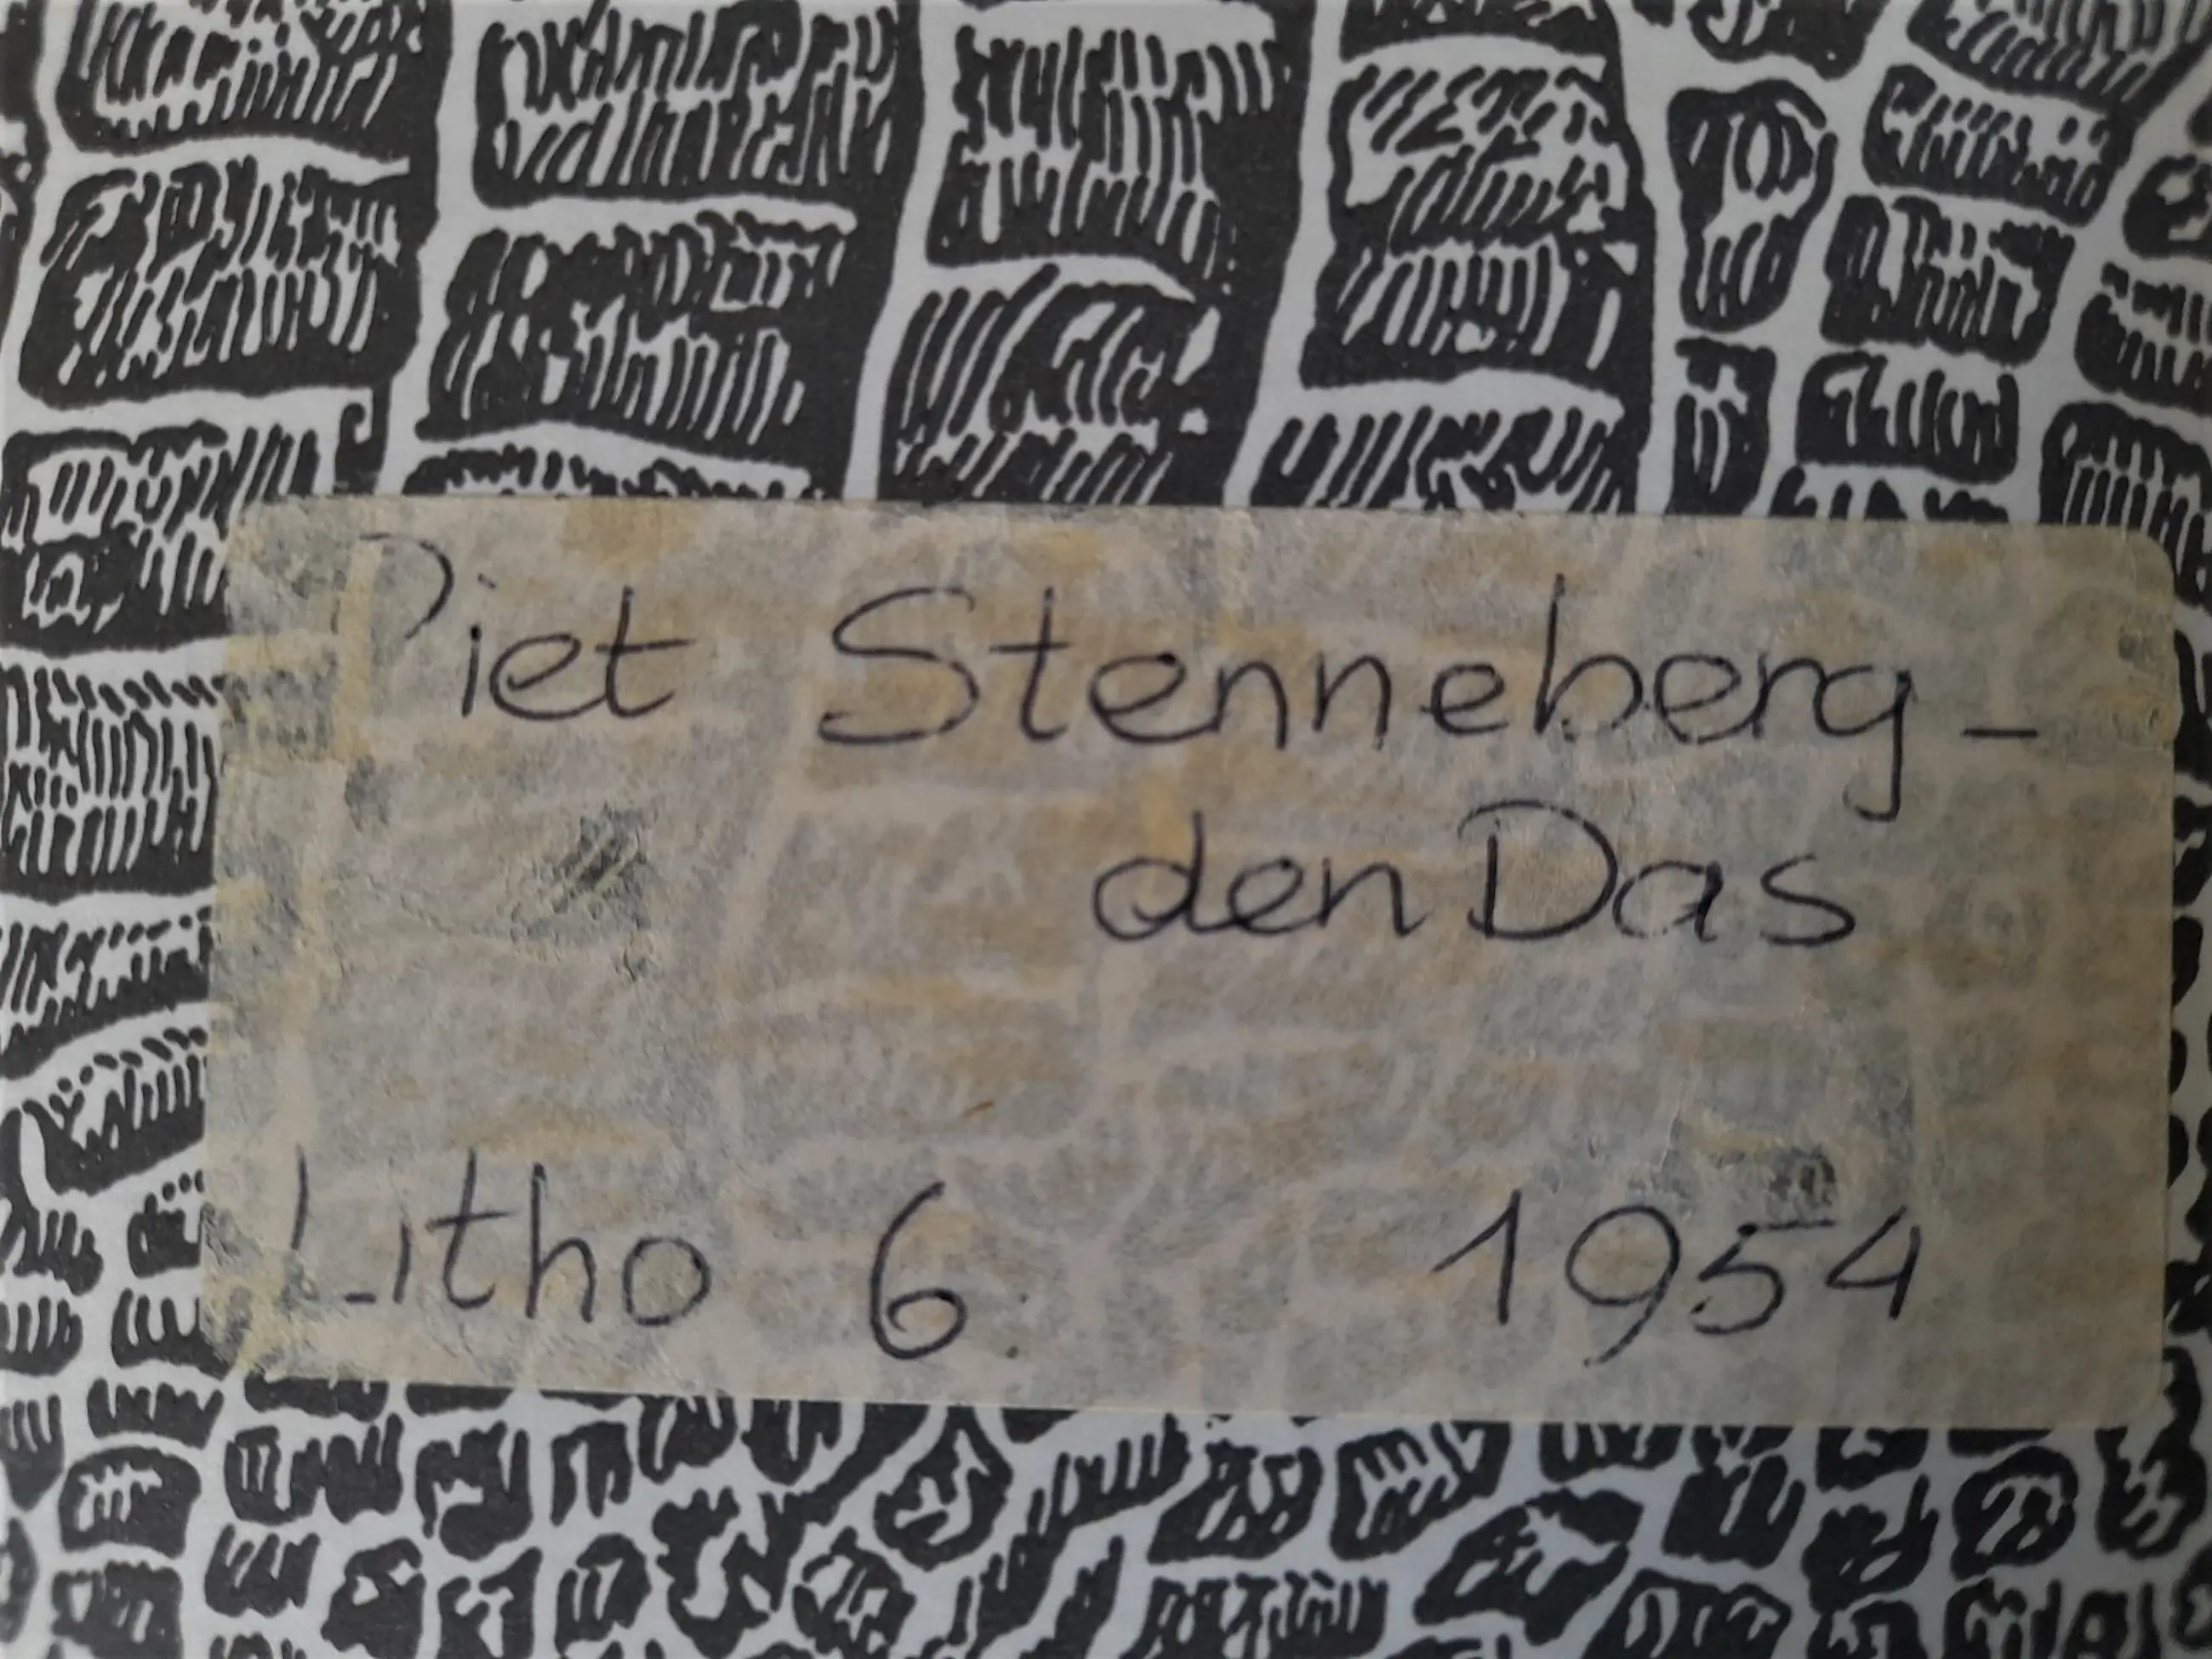 Piet Stenneberg -
den Das
Litho 6. 1954